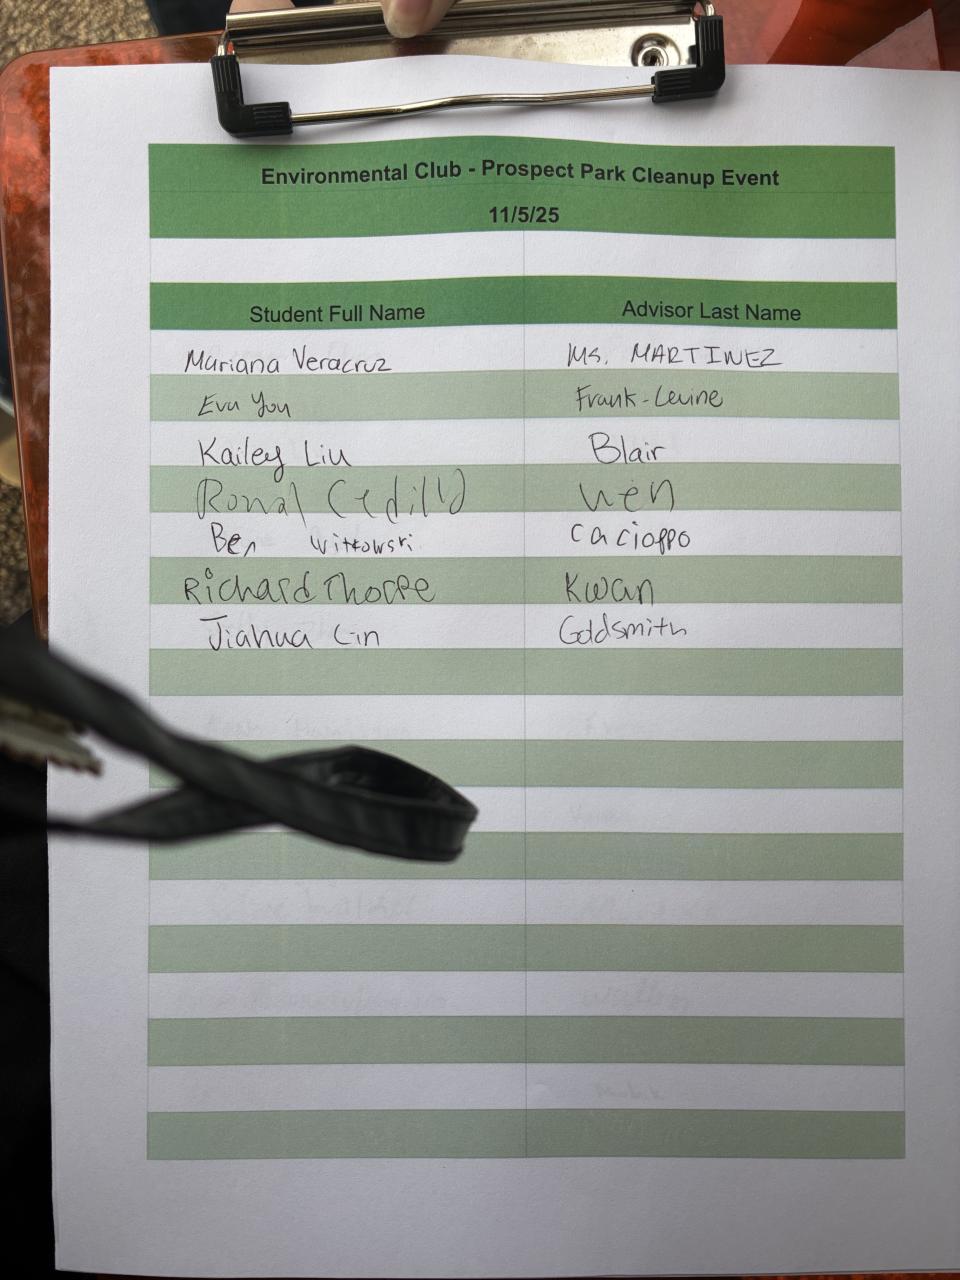 Environmental Club - Prospect Park Cleanup Event
11/5/25
Student Full Name Advisor Last Name
Mariana Veracruz Ms. MARTINEZ
Eva You Frank-Levine
Kailey Liu Blair
Ronal Cedillo Wen
Ben Witkowski Cacioppo
Richard Thorpe Kwan
Jiahua Lin Goldsmith